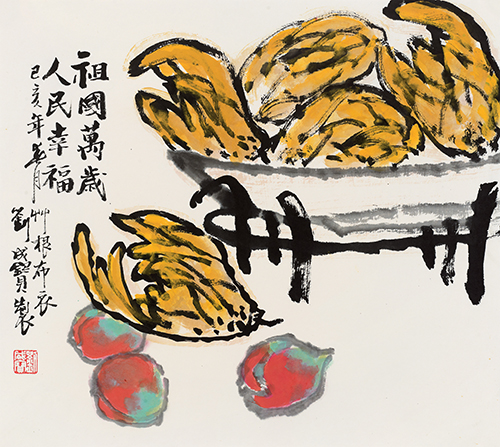 祖國萬歲
人民幸福
己亥年春月
草根布衣
劉成寶製